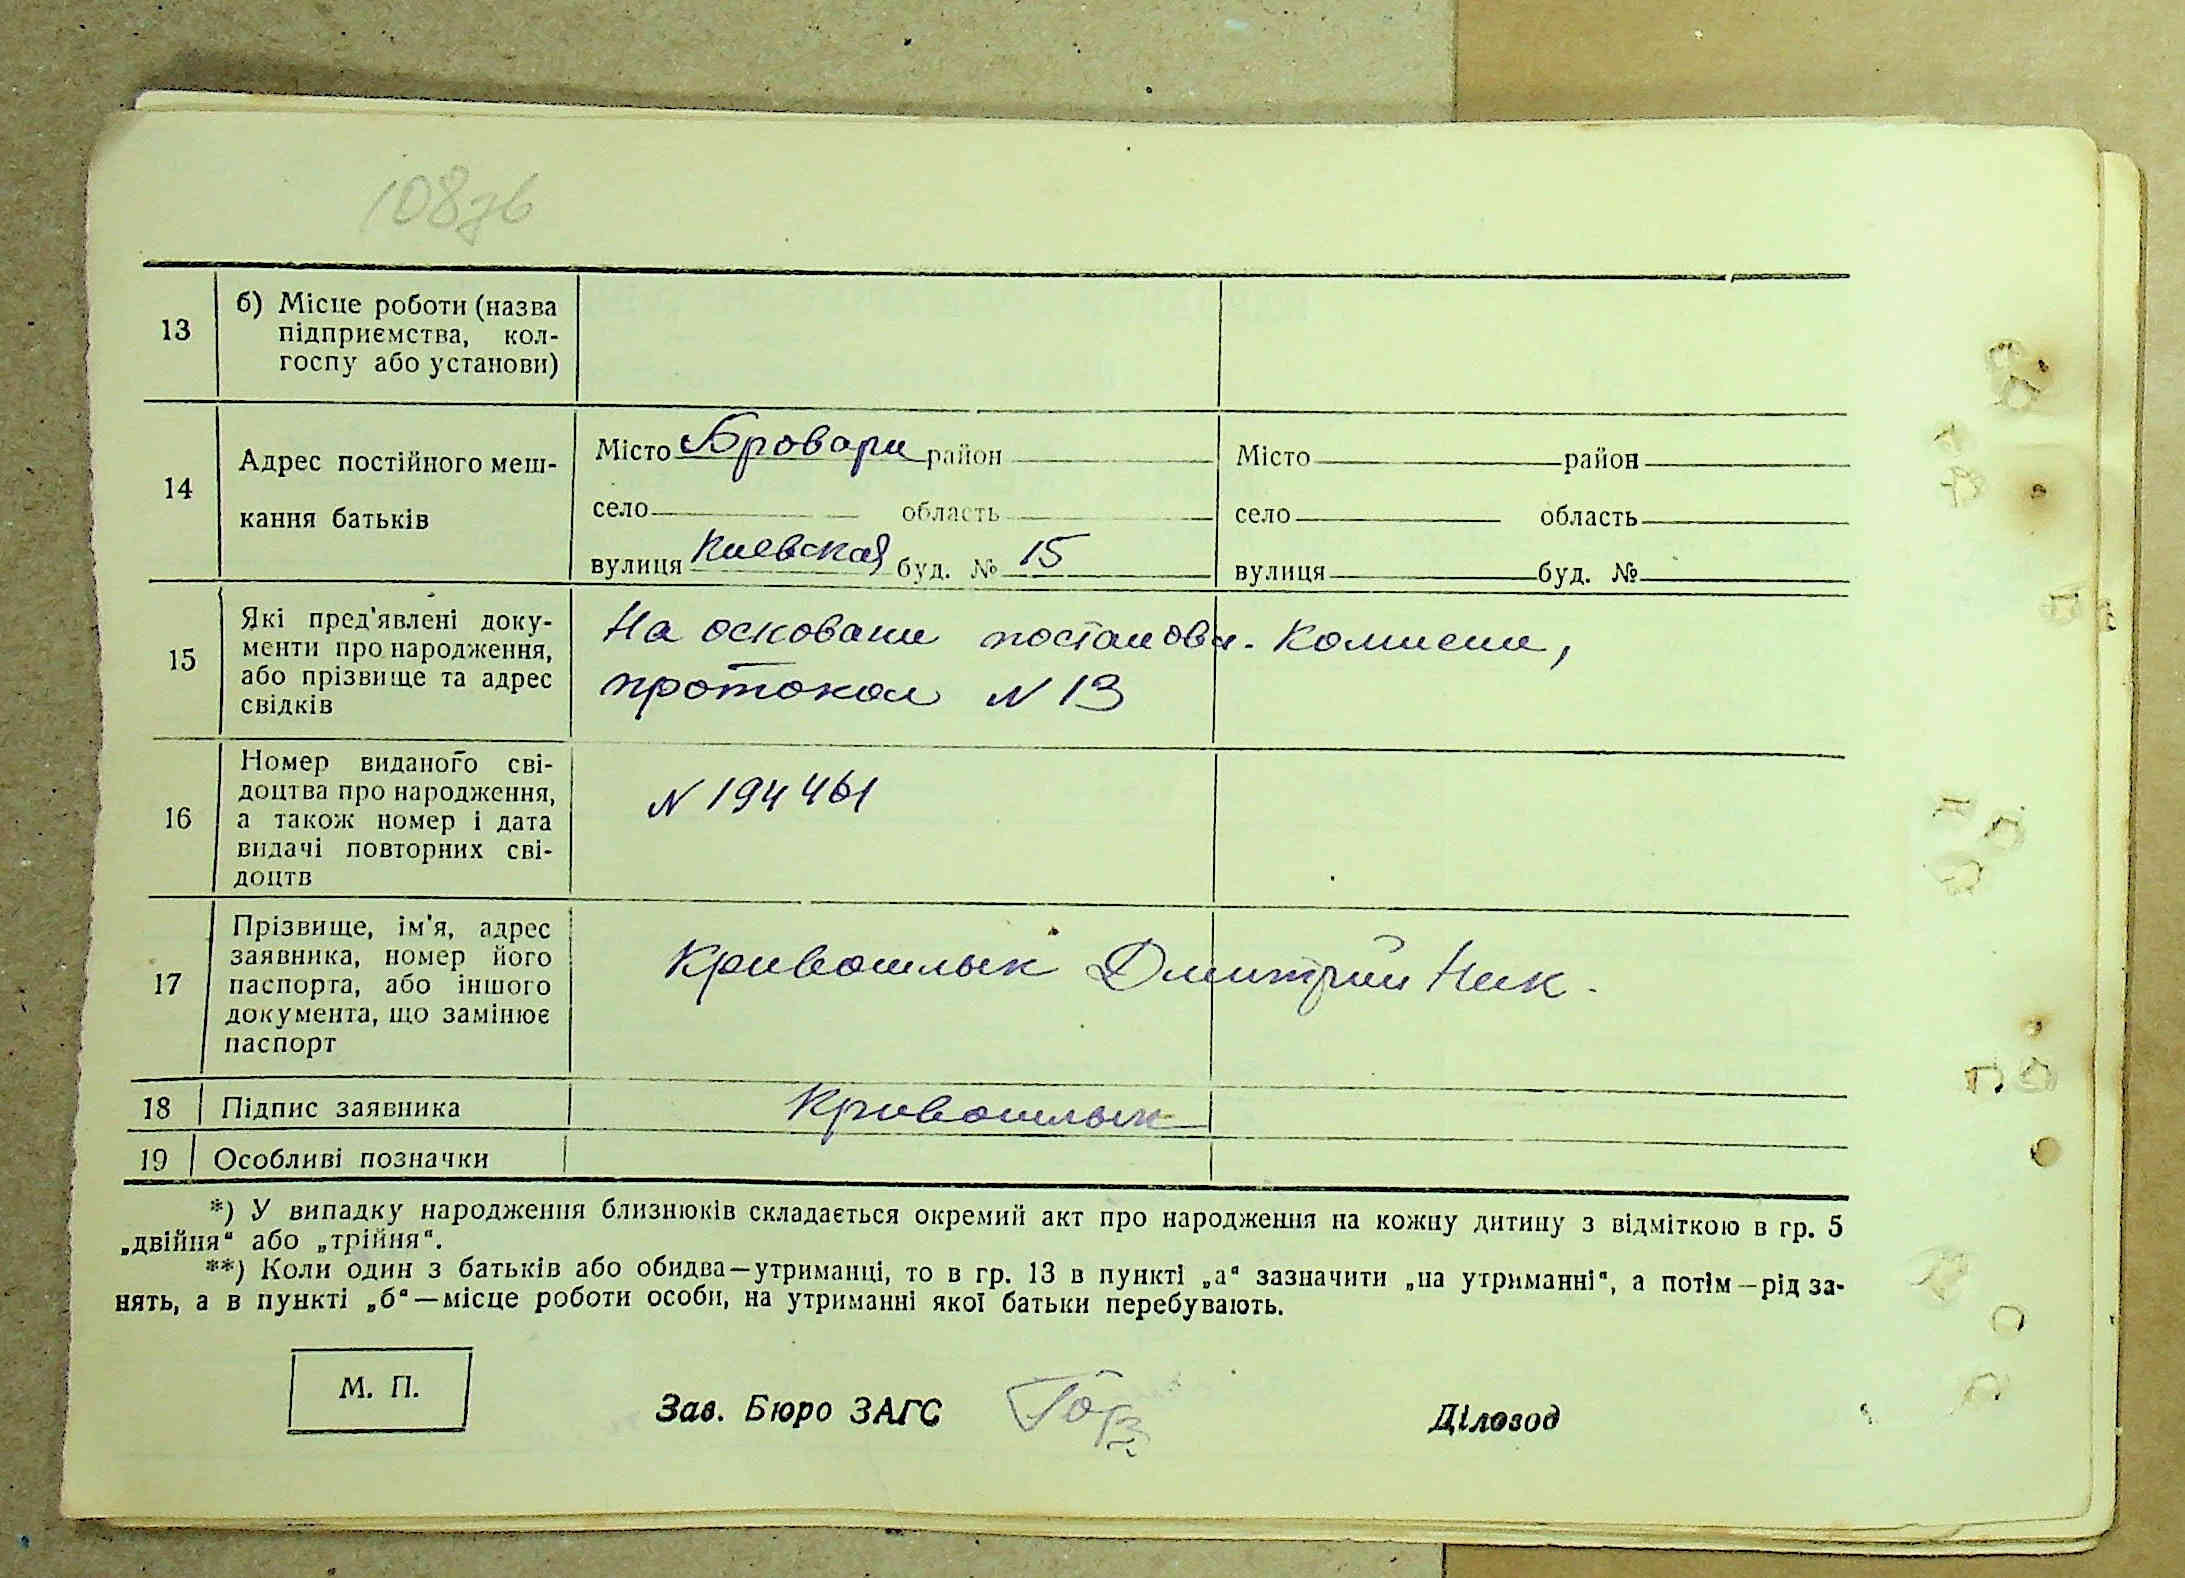 108зв
13
б) Місце роботи (назва
підприємства, кол-
госпу або установи)
14
Адрес постійного меш-
кання батьків
Місто Бровари район
село область
вулиця Киевская буд. № 15
Місто район
село область
вулиця буд. №
15
Які пред'явлені доку-
менти про народження,
або прізвище та адрес
свідків
На основани постанов. Комисии,
протокол N 13
16
Номер виданого сві-
доцтва про народження,
а також номер і дата
видачі повторних сві-
доцтв
N 194461
17
Прізвище, ім'я, адрес
заявника, номер його
паспорта, або іншого
документа, що замінює
паспорт
Кривошлык Дмитрий Ник.
18 Підпис заявника
Кривошлык
19 Особливі позначки
*) У випадку народження близнюків складається окремий акт про народження на кожну дитину з відміткою в гр. 5
„двійня“ або „трійня“.
**) Коли один з батьків або обидва—утриманці, то в гр. 13 в пункті „а“ зазначити „на утриманні“, а потім—рід за-
нять, а в пункті „б“—місце роботи особи, на утриманні якої батьки перебувають.
М. П.
Зав. Бюро ЗАГС
Діловод